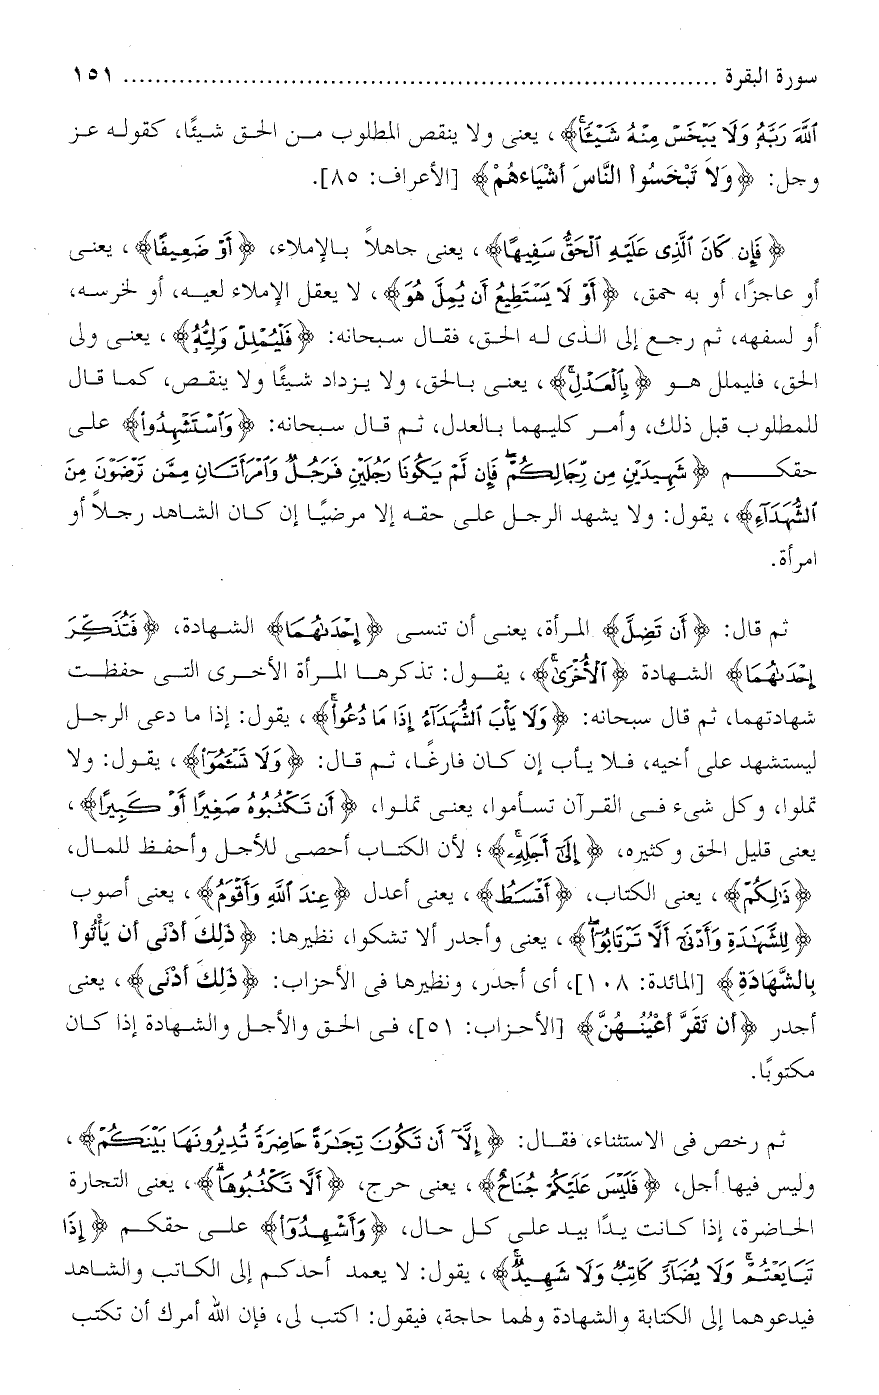 سورة البقرة ........................................................................... ١٥١
ٱللَّهَ رَبَّهُۥ وَلَا يَبْخَسْ مِنْهُ شَيْـًٔا﴾، يعنى ولا ينقص المطلوب من الحق شيئًا، كقوله عز
وجل: ﴿وَلاَ تَبْخَسُواْ النَّاسَ أَشْيَاءهُمْ﴾ [الأعراف: ٨٥].
﴿فَإِن كَانَ ٱلَّذِى عَلَيْهِ ٱلْحَقُّ سَفِيهًا﴾، يعنى جاهلاً بالإملاء، ﴿أَوْ ضَعِيفًا﴾، يعنى
أو عاجزًا، أو به حمق، ﴿أَوْ لَا يَسْتَطِيعُ أَن يُمِلَّ هُوَ﴾، لا يعقل الإملاء لعيه، أو لخرسه،
أو لسفهه، ثم رجع إلى الذى له الحق، فقال سبحانه: ﴿فَلْيُمْلِلْ وَلِيُّهُۥ﴾، يعنى ولى
الحق، فليملل هو ﴿بِٱلْعَدْلِ﴾، يعنى بالحق، ولا يزداد شيئًا ولا ينقص، كما قال
للمطلوب قبل ذلك، وأمر كليهما بالعدل، ثم قال سبحانه: ﴿وَٱسْتَشْهِدُوا۟﴾ على
حقكم ﴿شَهِيدَيْنِ مِن رِّجَالِكُمْ ۖ فَإِن لَّمْ يَكُونَا رَجُلَيْنِ فَرَجُلٌ وَٱمْرَأَتَانِ مِمَّن تَرْضَوْنَ مِنَ
ٱلشُّهَدَآءِ﴾، يقول: ولا يشهد الرجل على حقه إلا مرضيًا إن كان الشاهد رجلاً أو
امرأة.
ثم قال: ﴿أَن تَضِلَّ﴾ المرأة، يعنى أن تنسى ﴿إِحْدَىٰهُمَا﴾ الشهادة، ﴿فَتُذَكِّرَ
إِحْدَىٰهُمَا﴾ الشهادة ﴿ٱلْأُخْرَىٰ ۚ﴾، يقول: تذكرها المرأة الأخرى التى حفظت
شهادتهما، ثم قال سبحانه: ﴿وَلَا يَأْبَ ٱلشُّهَدَآءُ إِذَا مَا دُعُوا۟ ۚ﴾، يقول: إذا ما دعى الرجل
ليستشهد على أخيه، فلا يأب إن كان فارغًا، ثم قال: ﴿وَلَا تَسْـَٔمُوٓا۟﴾، يقول: ولا
تملوا، وكل شىء فى القرآن تسأموا، يعنى تملوا، ﴿أَن تَكْتُبُوهُ صَغِيرًا أَوْ كَبِيرًا﴾،
يعنى قليل الحق وكثيره، ﴿إِلَىٰٓ أَجَلِهِۦ ۚ﴾؛ لأن الكتاب أحصى للأجل وأحفظ للمال،
﴿ذَٰلِكُمْ﴾، يعنى الكتاب، ﴿أَقْسَطُ﴾، يعنى أعدل ﴿عِندَ ٱللَّهِ وَأَقْوَمُ﴾، يعنى أصوب
﴿لِلشَّهَٰدَةِ وَأَدْنَىٰٓ أَلَّا تَرْتَابُوٓا۟ ۖ﴾، يعنى وأجدر ألا تشكوا، نظيرها: ﴿ذَلِكَ أَدْنَى أَن يَأْتُواْ
بِالشَّهَادَةِ﴾ [المائدة: ١٠٨]، أى أجدر، ونظيرها فى الأحزاب: ﴿ذَلِكَ أَدْنَى﴾، يعنى
أجدر ﴿أَن تَقَرَّ أَعْيُنُهُنَّ﴾ [الأحزاب: ٥١]، فى الحق والأجل والشهادة إذا كان
مكتوبًا.
ثم رخص فى الاستثناء، فقال: ﴿إِلَّآ أَن تَكُونَ تِجَٰرَةً حَاضِرَةً تُدِيرُونَهَا بَيْنَكُمْ﴾،
وليس فيها أجل، ﴿فَلَيْسَ عَلَيْكُمْ جُنَاحٌ﴾، يعنى حرج، ﴿أَلَّا تَكْتُبُوهَا ۗ﴾، يعنى التجارة
الحاضرة، إذا كانت يدًا بيد على كل حال، ﴿وَأَشْهِدُوٓا۟﴾ على حقكم ﴿إِذَا
تَبَايَعْتُمْ ۚ وَلَا يُضَآرَّ كَاتِبٌ وَلَا شَهِيدٌ ۚ﴾، يقول: لا يعمد أحدكم إلى الكاتب والشاهد
فيدعوهما إلى الكتابة والشهادة ولهما حاجة، فيقول: اكتب لى، فإن الله أمرك أن تكتب